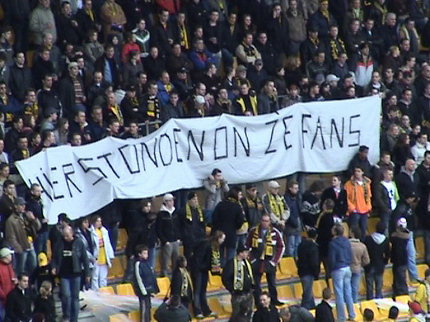 HIER STONDEN ONZE FANS